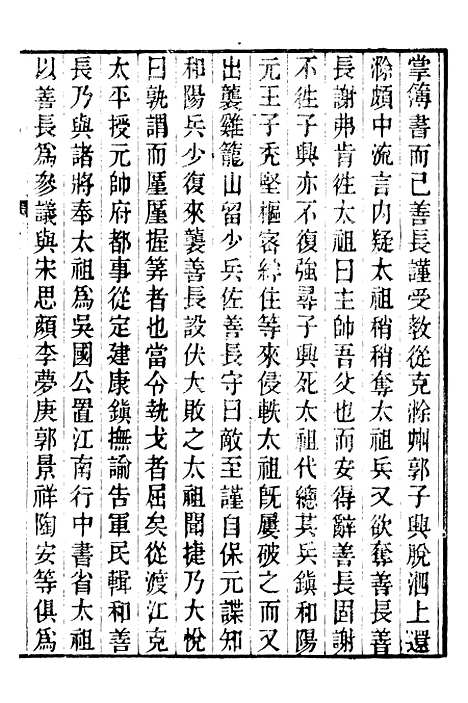 掌簿書而已善長謹受教從克滁州郭子興脫泗上還
滁頗中流言内疑太祖稍稍奪太祖兵又欲奪善長善
長謝弗肯徃太祖曰主帥吾父也而安得辭善長固謝
不徃子興亦不復強尋子興死太祖代總其兵鎮和陽
元王子禿堅樞密絆住等來侵軼太祖旣屢破之而又
出襲雞籠山留少兵佐善長守曰敵至謹自保元諜知
和陽兵少復來襲善長設伏大敗之太祖聞捷乃大悅
曰孰謂而厪厪握筭者也當令執戈者屈矣從渡江克
太平授元帥府都事從定建康鎮撫諭告軍民輯和善
長乃與諸將奉太祖爲吳國公置江南行中書省太祖
以善長爲參議與宋思顏李夢庚郭景祥陶安等俱爲